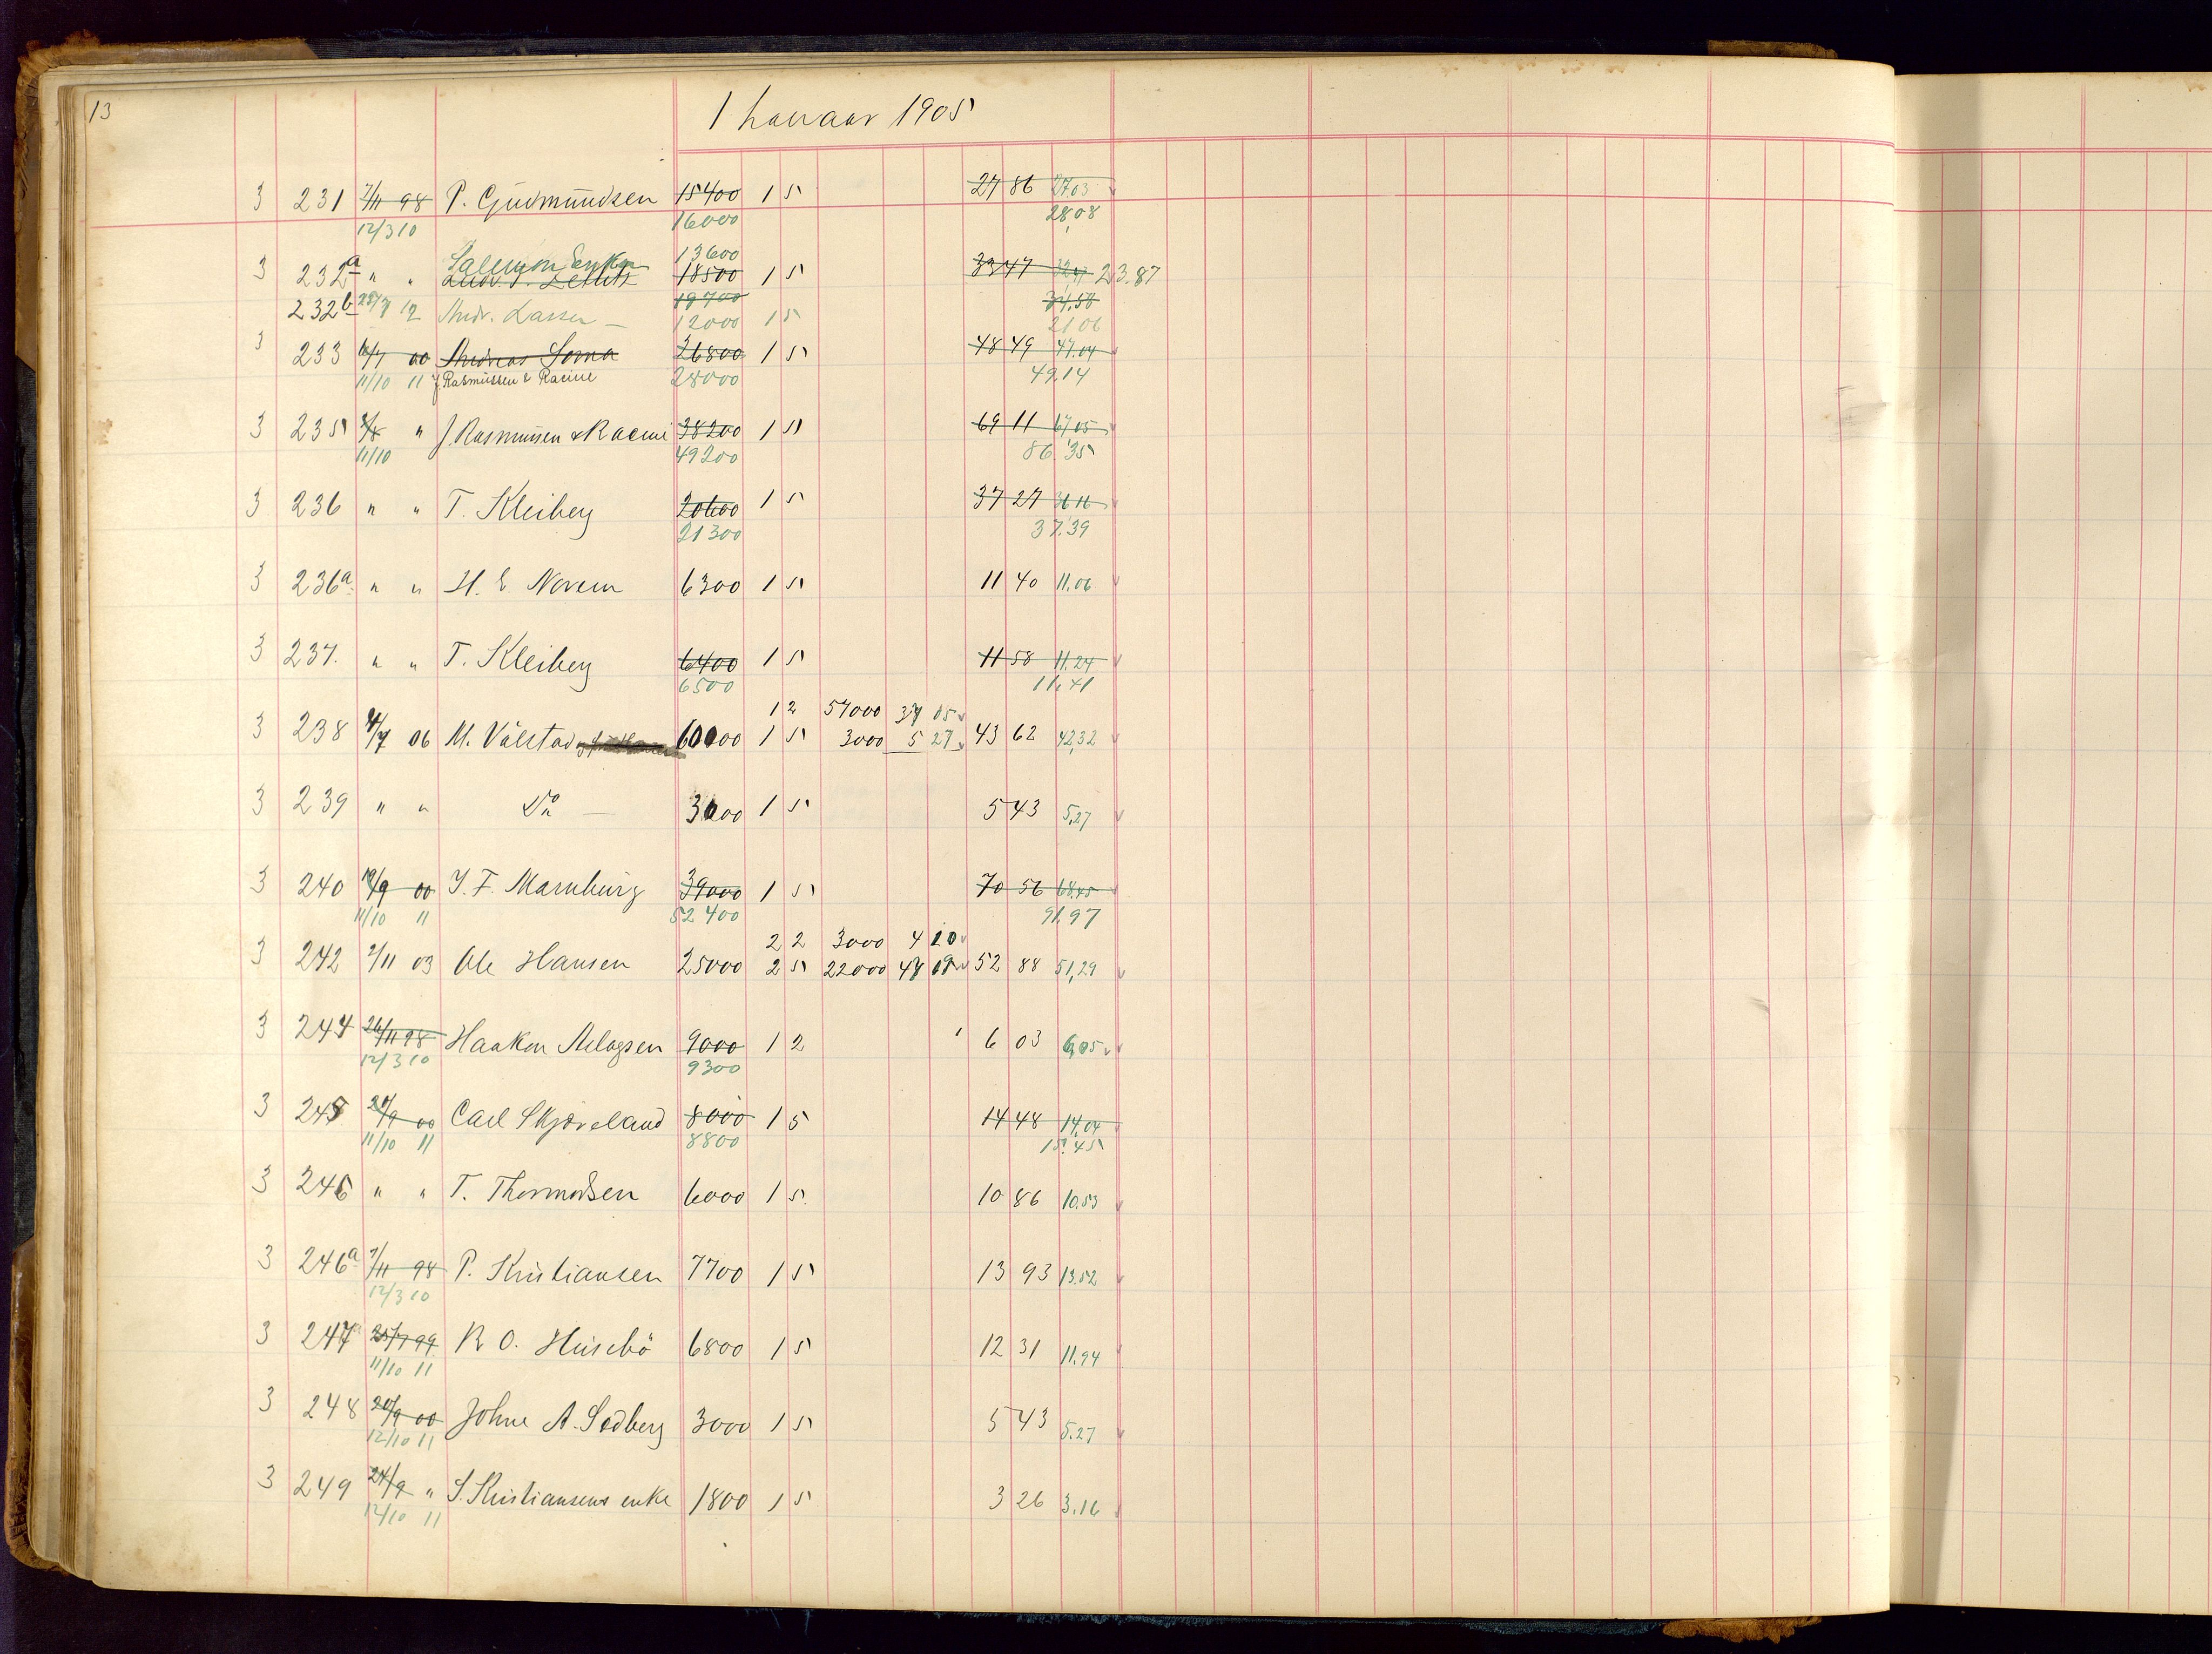 13
1 Januar 1905
3 231 7/11 98 P. Gudmundsen 15400 1 5 27 86 27.03
12/3 10 16000 28,08
Salemon Enke 13600
3 232a " " 18500 1 5 33 47 23.87
19700 34,58
232b 12 Andr. Larsen — 12000 1 5 21 06
3 233 6/7 00 Andreas Soma 26800 1 5 48 49 47.04
11/10 11 J. Rasmussen & Racine 28000 49.14
3 235 " J. Rasmussen & Racine 38200 1 5 69 11 67.05
11/10 49200 86.35
3 236 " " T. Kleiberg 20600 1 5 37 27 36.16
21300 37.39
3 236a " " H. E. Norem 6300 1 5 11 40 11.06
3 237. " " T. Kleiberg 6400 1 5 11 58 11.24
6500 11.41
1 2 57000 37 05
3 238 06 M. Válstad 60000 1 5 3000 5 27 43 62 42,32
3 239 " " Do — 3000 1 5 5 43 5,27
3 240 19/9 00 J. F. Marnburg 39000 1 5 70 56 68.45
11/10 11 52400 91.97
2 2 3000 4 20
3 242 7/11 03 Ole Hansen 25000 2 5 22000 47 09 52 88 51,29
3 244 26/11 98 Haakon Aslagsen 9000 1 2 6 03 6,05
12/3 10 9300
3 245 20/9 00 Carl Skjæveland 8000 1 5 14 48 14,04
11/10 11 8800 15.45
3 246 " " T. Thormodsen 6000 1 5 10 86 10.53
3 246a 7/11 98 P. Kristiansen 7700 1 5 13 93 13.52
12/3 10
3 247a 25/7 99 R O. Husebö 6800 1 5 12 31 11.94
11/10 11
3 248 20/9 00 Johne A. Sodberg 3000 1 5 5 43 5.27
12/10 11
3 249 24/9 " S. Kristiansens enke 1800 1 5 3 26 3.16
12/10 11